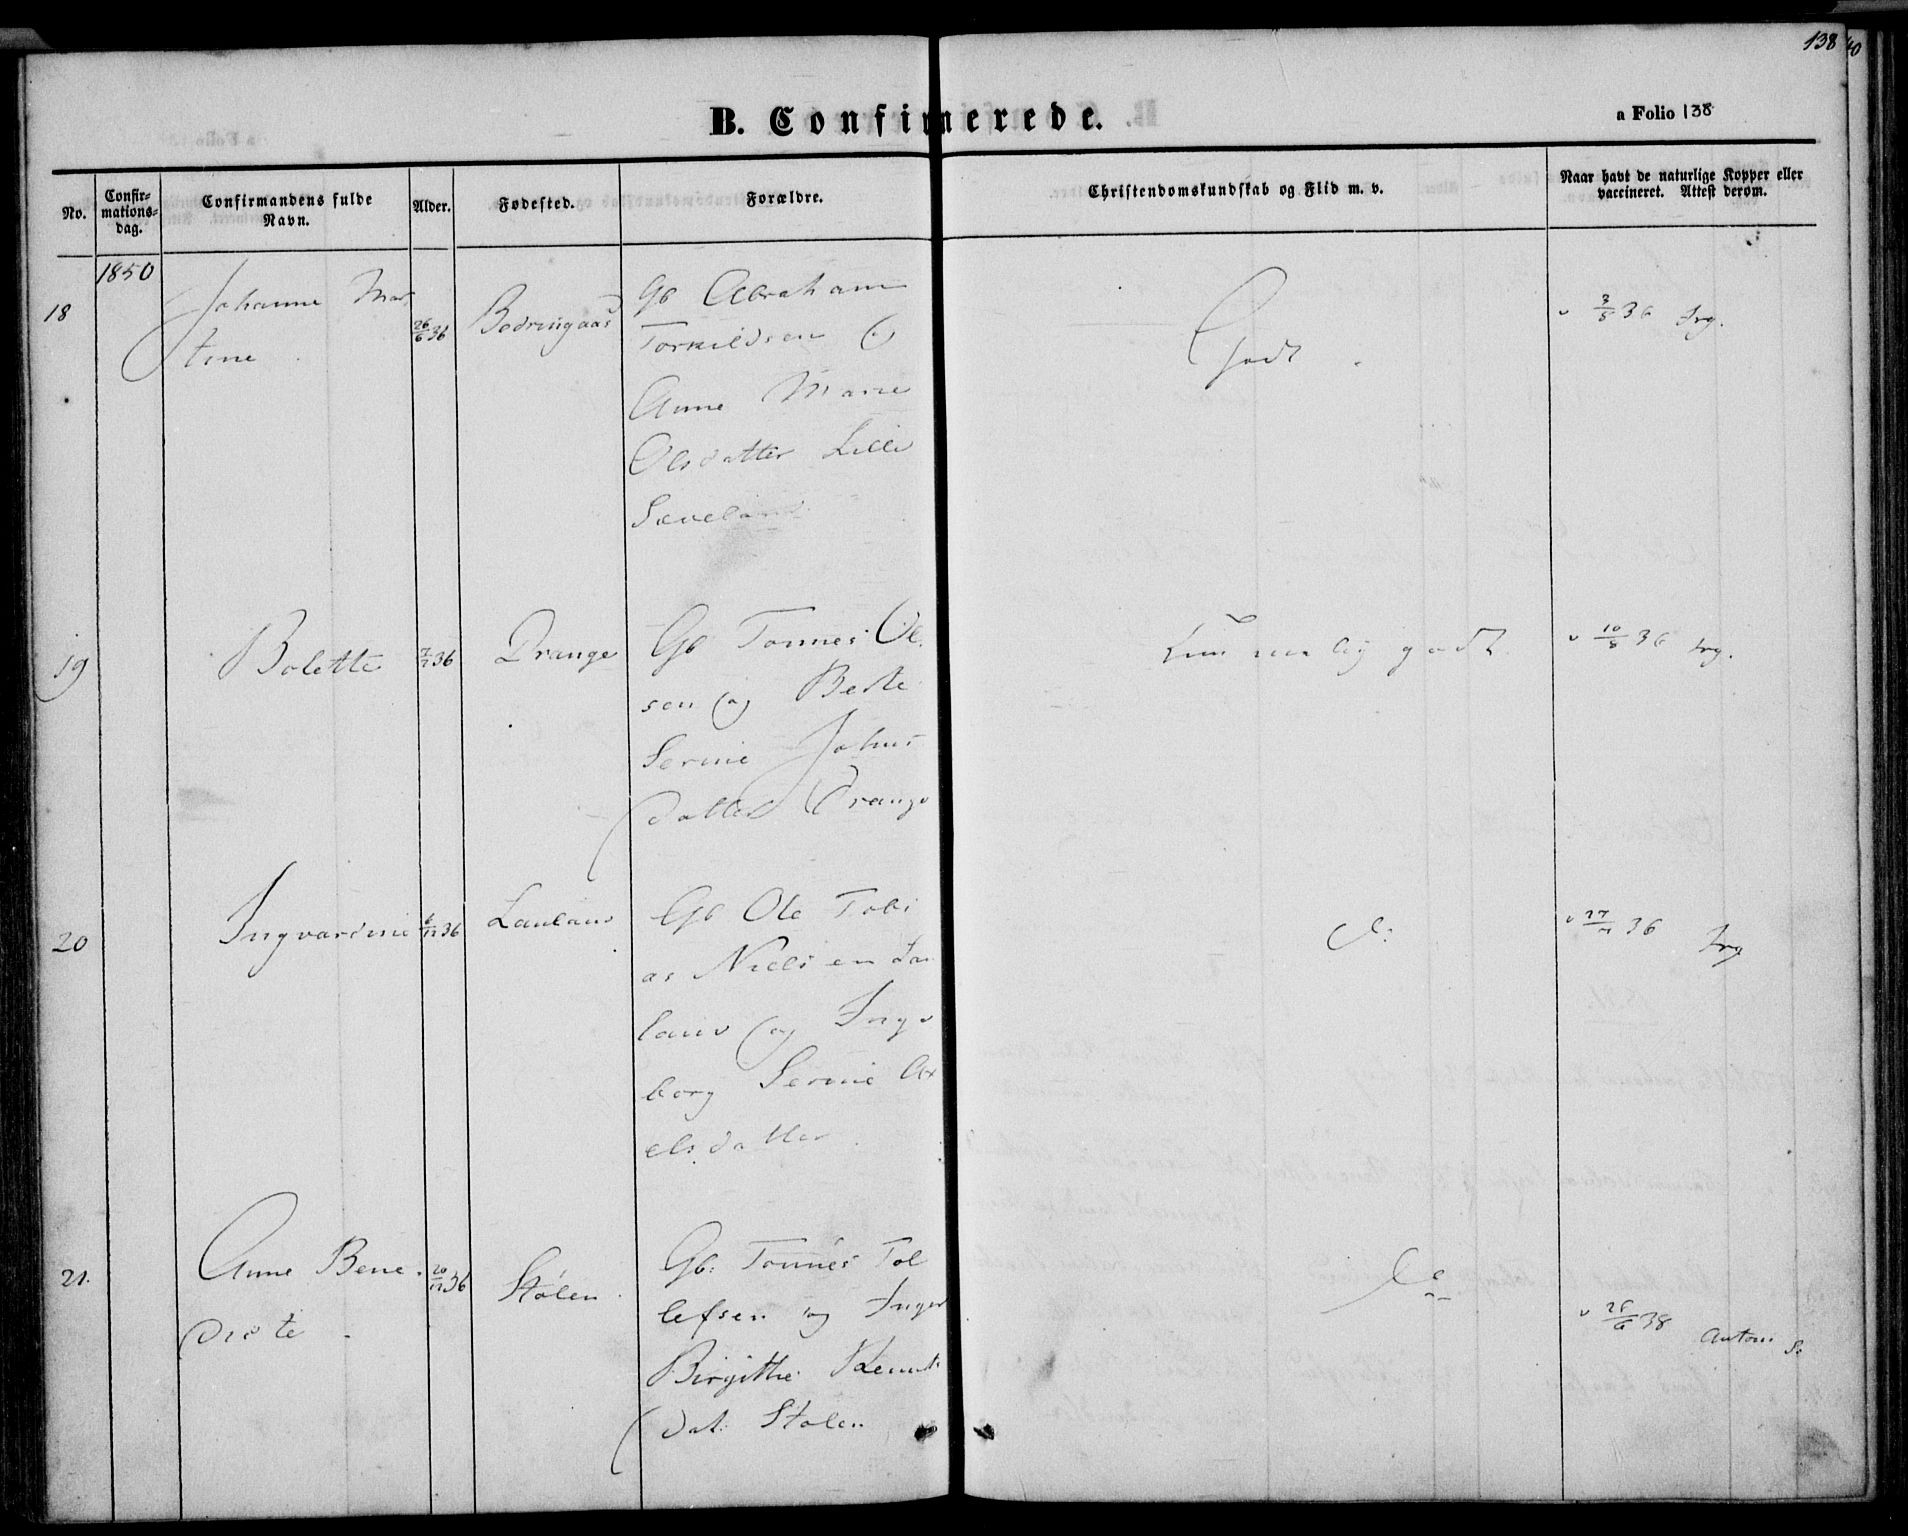 138
B. Confirmerede.
a Folio 138
No.
Confir-
mations-
dag.
Confirmandens fulde
Navn.
Alder.
Fødested.
Forældre.
Christendomskundskab og Flid m. v.
Naar havt de naturlige Kopper eller
vaccineret. Attest derom.
1850
18
Johanne Mar
tine
26/6 36
Gb Abraham
Torkildsen og
Anne Marie
Olsdatter Lille
Sæveland
Godt
v 3/8 36
19
Bolette
7/7 36
Drange
Gb Tønnes Ol
sen og Berte
Serine Johns
datter Drange
temmelig godt
v 10/8 36
20
Ingvardine
Lauland
Gb Ole Tobi
as Nielsen Lau
land og Inge
borg Serine Ax
elsdatter
d:
v 27/7 36
21.
Anne Bene
dicte
20/12 36
Stølen
Gb: Tønnes Tol
lefsen og Inger
Birgitthe
dat: Stølen
do
v 26/6 38